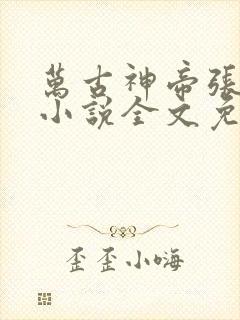 萬古神帝張
小說全文免
歪歪小嗨